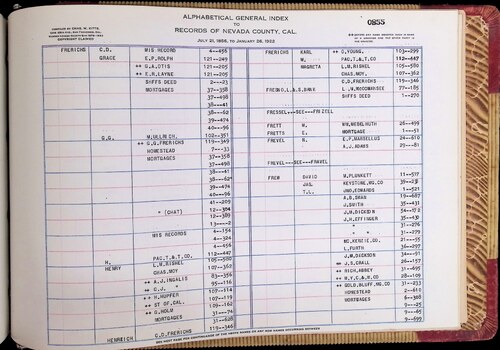 ALPHABETICAL GENERAL INDEX
TO
RECORDS OF NEVADA COUNTY, CAL.
JULY 21, 1856, TO JANUARY 26, 1933
0855
COPYRIGHT CLAIMED
FRERICHS C.D. MIS RECORD 4--456
GRACE E.P. ROLPH 121--249
++ G.A. OTIS 121--205
++ E.R. LAYNE 121--205
SHFFS DEED 2--23
MORTGAGES 37--358
37--498
38---41
38---62
39--474
40---96
G.G. M. ULLRICH 102--351
++ G.G. FRERICHS 119--349
HOMESTEAD 7---33
MORTGAGES 37--358
37--498
38---41
38---62
39--474
40---96
41--209
" (CHAT) 12--304
12--389
13----2
MIS RECORDS 4--154
4--324
4--456
H. PAC. T. & T. CO 112--447
HENRY L.M. RISHEL 105--580
CHAS. MOY 107--362
++ A.J. INGALLS 83--356
++ C.J. " 95--116
++ H. HUPFER 107--114
++ ST OF. CAL. 107--119
++ G. HOLM 109--162
MORTGAGES 31---74
31--628
HEINREICH C.D. FRERICHS 119--346
FRERICHS KARL ++ C. YOUNG 103--299
M. PAC. T & T. CO 112--447
MAGRETA L.M. RISHEL 105--580
CHAS. MOY 107--362
C.D. FRERICHS 119--346
FRESNO.L.& S.BANK 77--185
SHFFS DEED 1--270
FRESSEL---SEE---FRIZELL
FRETT M. 26--499
FRETTS E. MORTGAGE 1---51
FREVEL N. E.P. MARSELLUS 24--610
A.J. ADAMS 29---81
FREVEL---SEE---FRAVEL
FREW DAVID W. PLUNKETT 11--517
JAS. KEYSTONE. MG. CO
T.L. JNO. EDWARDS 1--521
A.B. BRAN 19--687
J. SMITH 35--431
J.M. DICKSON
J.H. EFFINGER 35--430
" " 31--276
" " 31--279
MC. KENZIE. CO. 21---55
L. FURTH
J.M. DICKSON 34---51
++ J.S. CRALL 26--157
++ RICH. ABBEY 31--695
++ N.Y. C. & H. CO 28--109
++ GOLD. BLUFF. MG. CO 31--233
HOMESTEAD 2--610
MORTGAGES 6--308
9---25
9---65
9--699